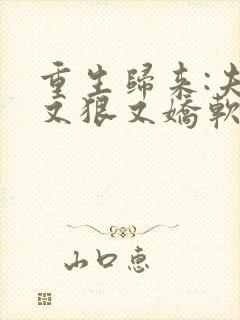 重生歸来:夫
又狠又嬌軟
山口惠